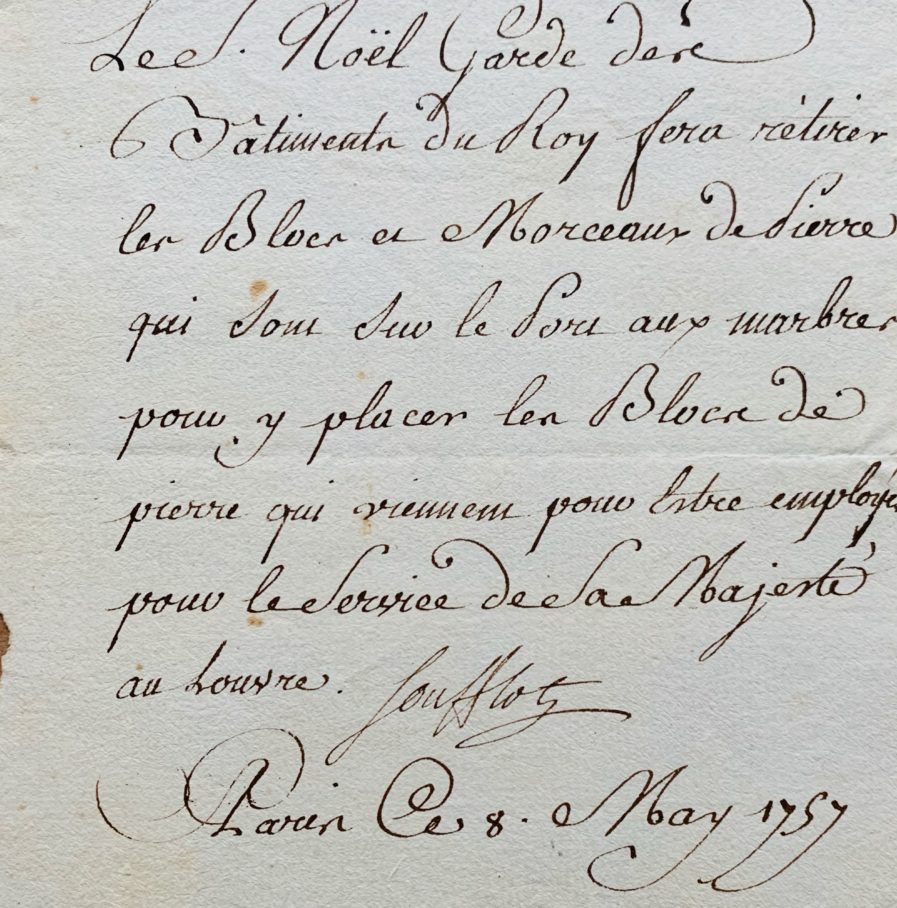 Le S. Noël Garde des
Bâtiments du Roy fera rétirer
les Blocs et Morceaux de Pierre
qui sont sur le Port aux marbres
pour y placer les Blocs de
pierre qui viennent pour Estre employés
pour le Service de Sa Majesté
au Louvre. Soufflot
Paris Ce 8. May 1757